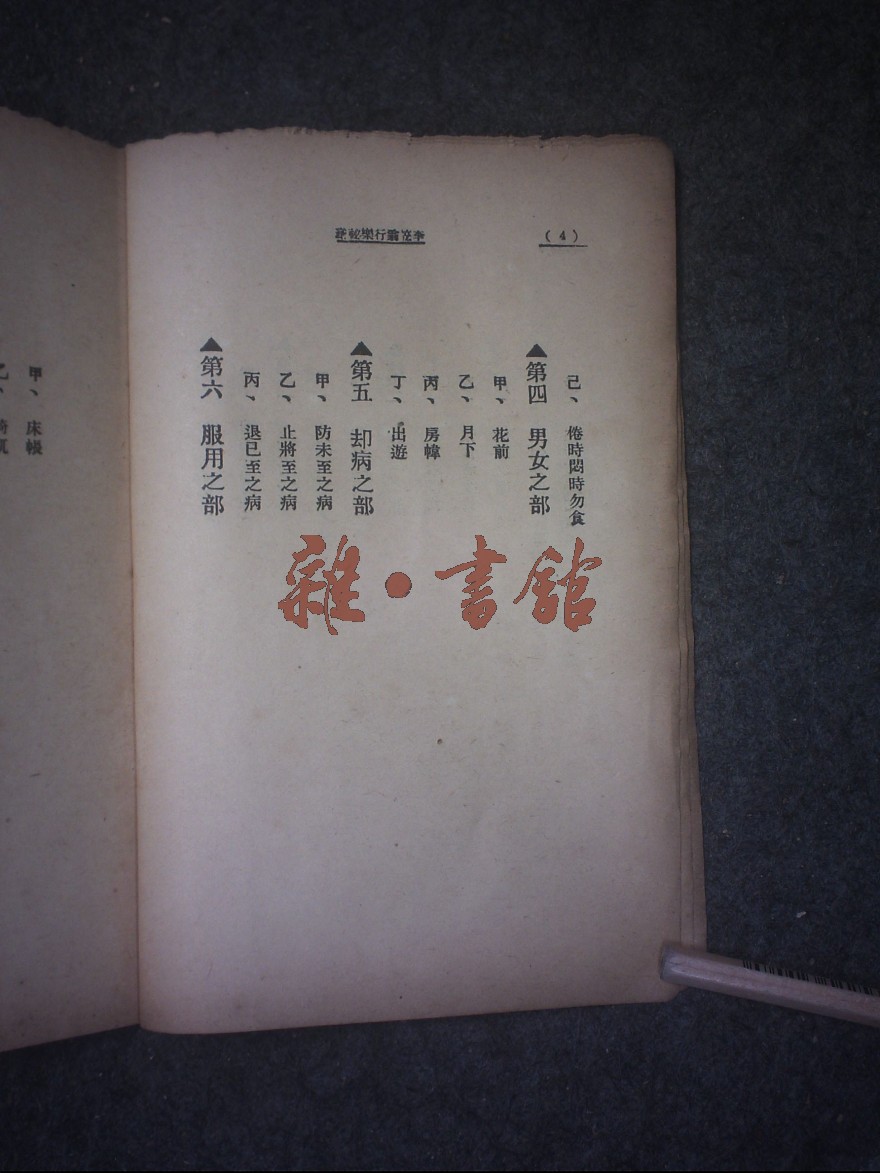 (4)
李笠翁行樂
己、倦時悶時勿食
▲第四 男女之部
甲、花前
乙、月下
丙、房幃
丁、出遊
▲第五 却病之部
甲、防未至之病
乙、止將至之病
丙、退已至之病
▲第六 服用之部
甲、床帳
乙、
雜·書館